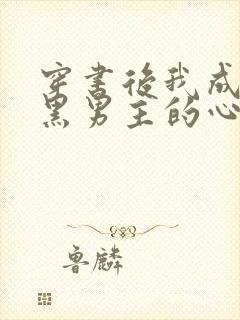 穿书後我成
黑男主的心
鲁麟